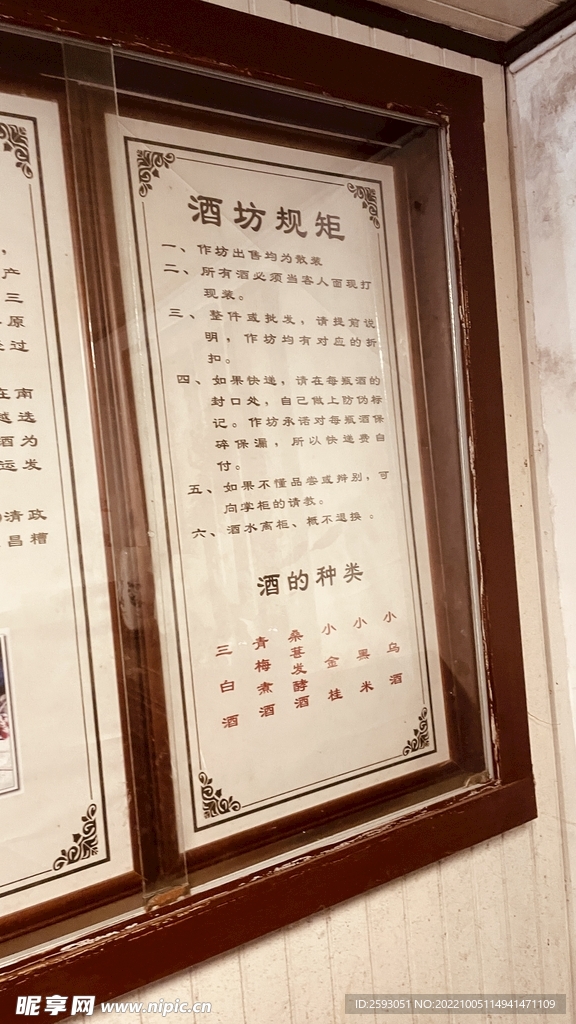 产
三
原
过
在南
越选
酒为
运发
清政
昌糟
酒坊规矩
一、作坊出售均为散装
二、所有酒必须当客人面现打
现装。
三、整件或批发，请提前说
明，作坊均有对应的折
扣。
四、如果快递，请在每瓶酒的
封口处，自己做上防伪标
记。作坊承诺对每瓶酒保
碎保漏，所以快递费自
付。
五、如果不懂品尝或辩别，可
向掌柜的请教。
六、酒水离柜、概不退换。
酒的种类
三白酒
青梅煮酒
桑葚发酵酒
小金桂
小黑米
小乌酒
昵享网 www.nipic.cn
ID:2593051 NO:20221005114941471109